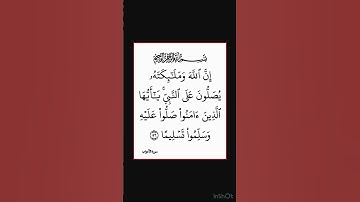 بِسْمِ ٱللَّهِ ٱلرَّحْمَٰنِ ٱلرَّحِيمِ
إِنَّ ٱللَّهَ وَمَلَٰٓئِكَتَهُۥ
يُصَلُّونَ عَلَى ٱلنَّبِيِّ يَٰٓأَيُّهَا
ٱلَّذِينَ ءَامَنُوا۟ صَلُّوا۟ عَلَيْهِ
وَسَلِّمُوا۟ تَسْلِيمًا ٥٦
سورة الأحزاب
InShOt